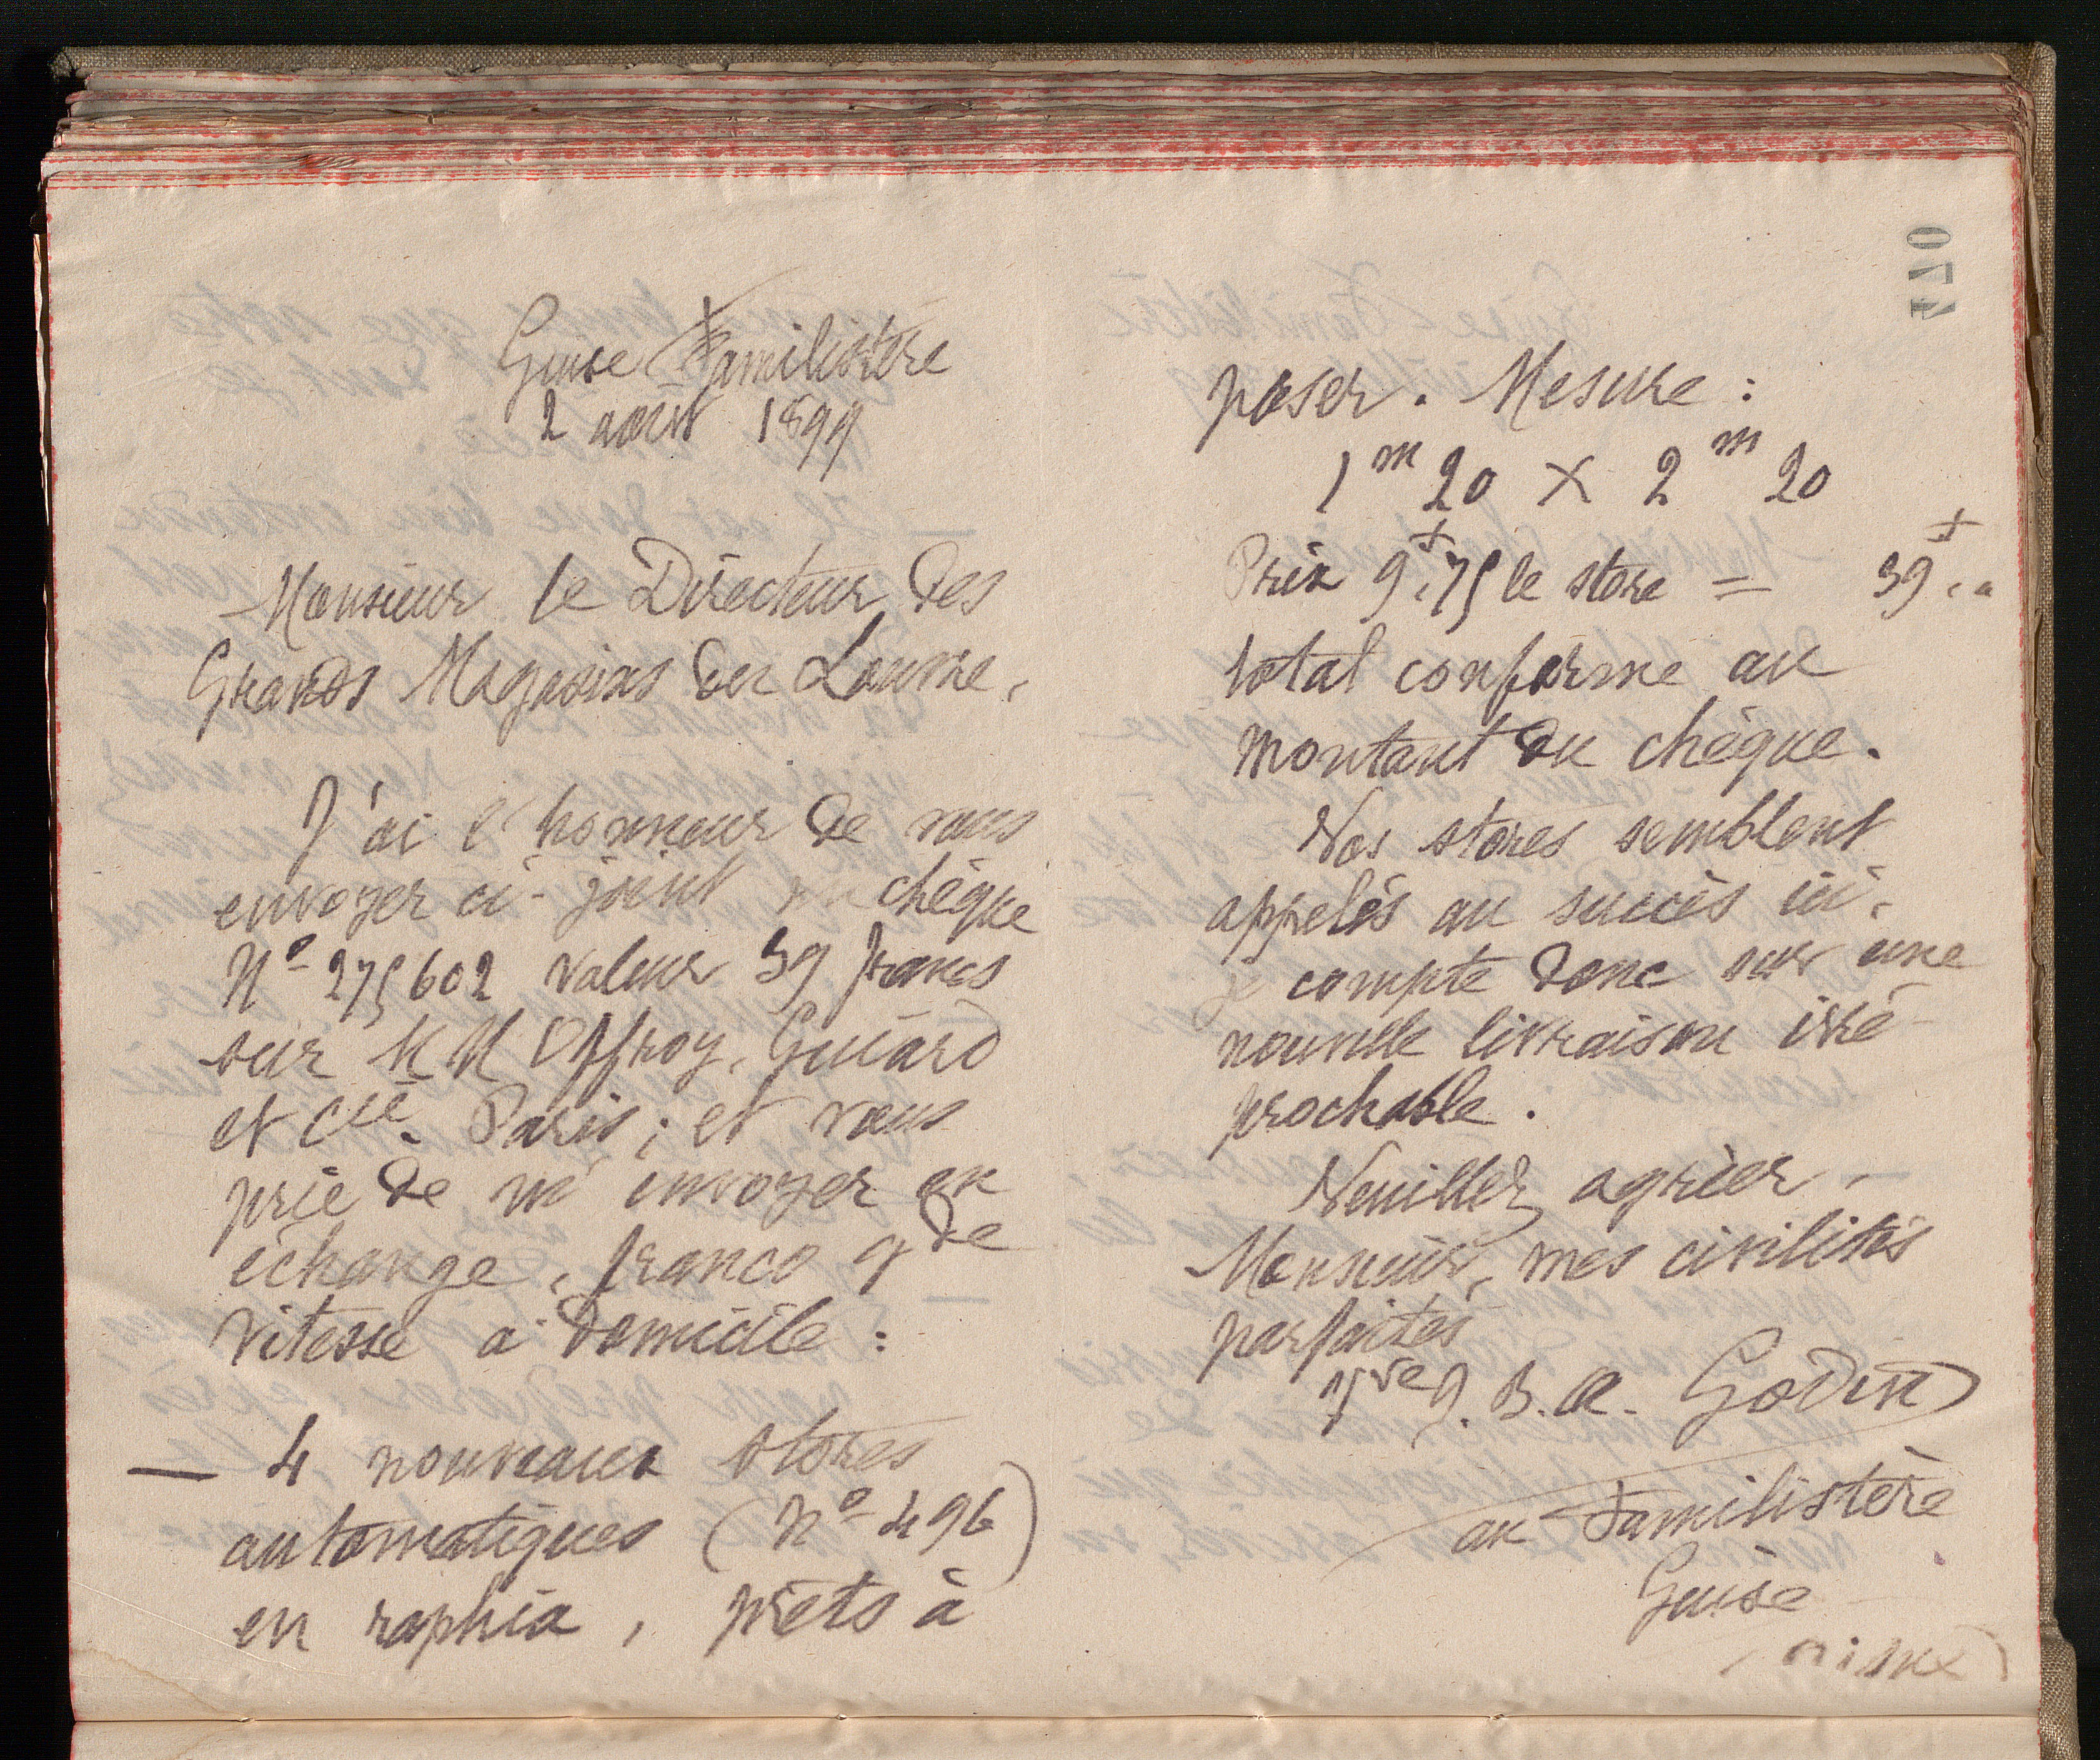 Guise Familistère
2 août 1899
Monsieur le Directeur des
Grands Magasins du Louvre,
J'ai l'honneur de vous
envoyer ci-joint un chèque
N° 275602 valeur 39 francs
sur MM Offroy, Guiard
et Cie. Paris ; et vous
prie de m'envoyer en
échange, franco gde
vitesse à domicile :
— 4 nouveaux stores
automatiques (N° 496)
en raphia, prêts à
070
poser. Mesure :
1m20 X 2m20
Prix 9f,75 le store = 39f,"
total conforme au
montant du chèque.
Vos stores semblent
appelés au succès ici,
je compte donc sur une
nouvelle livraison irré-
prochable.
Veuillez agréer,
Monsieur, mes civilités
parfaites
Vve J. B. A. Godin
au Familistère
Guise
(Aisne)